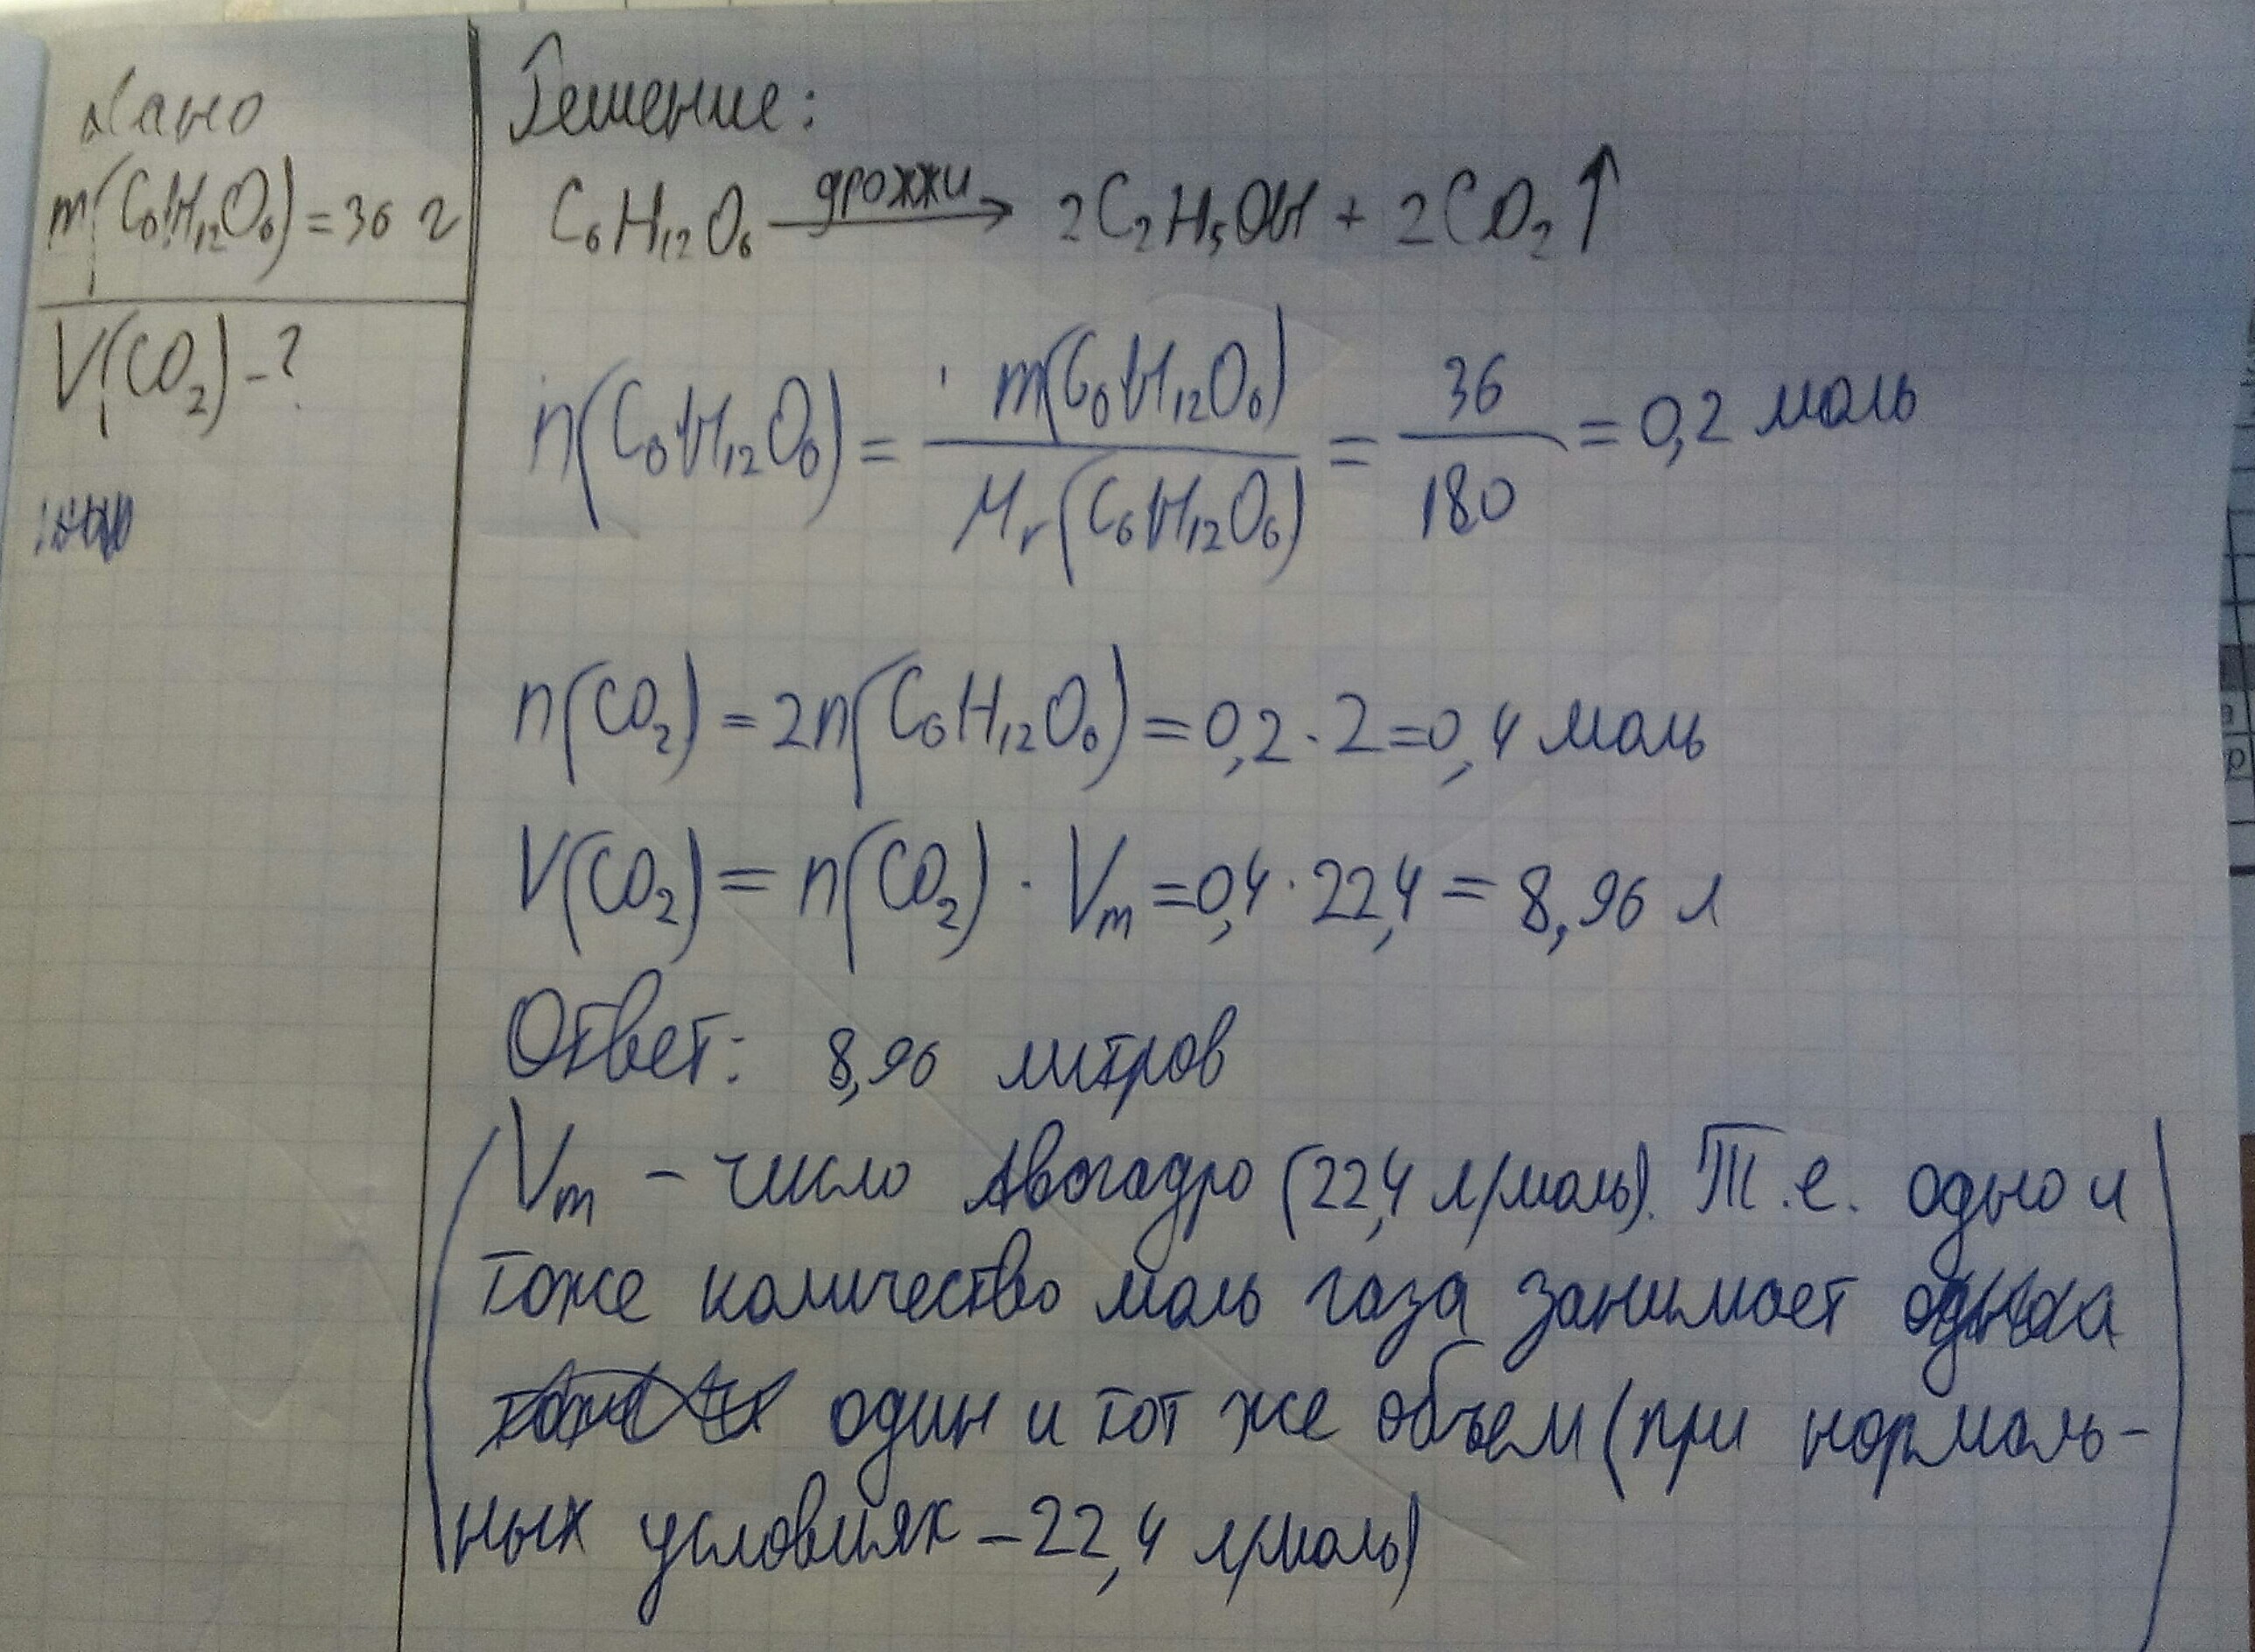 Дано
m(C₆H₁₂O₆) = 36 г
V(CO₂) - ?
Решение:
C₆H₁₂O₆ —дрожжи→ 2C₂H₅OH + 2CO₂↑
n(C₆H₁₂O₆) = m(C₆H₁₂O₆) / Mr(C₆H₁₂O₆) = 36 / 180 = 0,2 моль
n(CO₂) = 2n(C₆H₁₂O₆) = 0,2 · 2 = 0,4 моль
V(CO₂) = n(CO₂) · Vm = 0,4 · 22,4 = 8,96 л
Ответ: 8,96 литров
(Vm – число Авогадро (22,4 л/моль). Т.е. одно и
тоже количество моль газа занимает
один и тот же объем (при нормаль-
ных условиях – 22,4 л/моль)